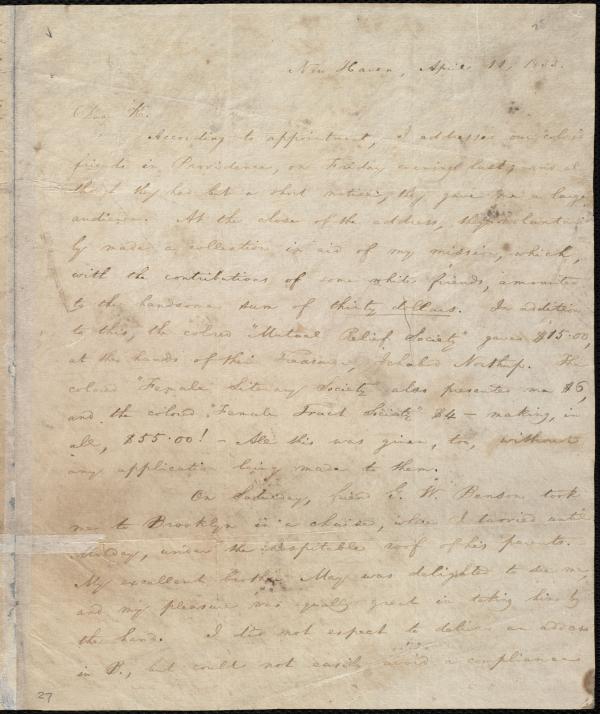 New Haven, April 11, 1833.
Sir:
According to appointment, I addressed our colored
friends in Providence, on Friday evening last, and al
though they had but a short notice, they gave me a large
audience. At the close of the address, they voluntari
ly made a collection in aid of my mission, which,
with the contributions of some white friends, amounted
to the handsome sum of thirty dollars. In addition
to this, the colored "Mutual Relief Society" gave $15.00,
at the hands of their Treasurer, Northup. The
colored "Female Literary Society" also presented me $6,
and the colored "Female Tract Society" $4 — making, in
all, $55.00! — All this was given, too, without
any application being made to them.
On Saturday, friend G. W. Benson took
me to Brooklyn in a chaise, where I tarried until
Monday, under the hospitable roof of his parents.
My excellent brother May was delighted to see me,
and my pleasure was equally great in taking him by
the hand. I did not expect to deliver an address
in B., but could not easily avoid a compliance
27